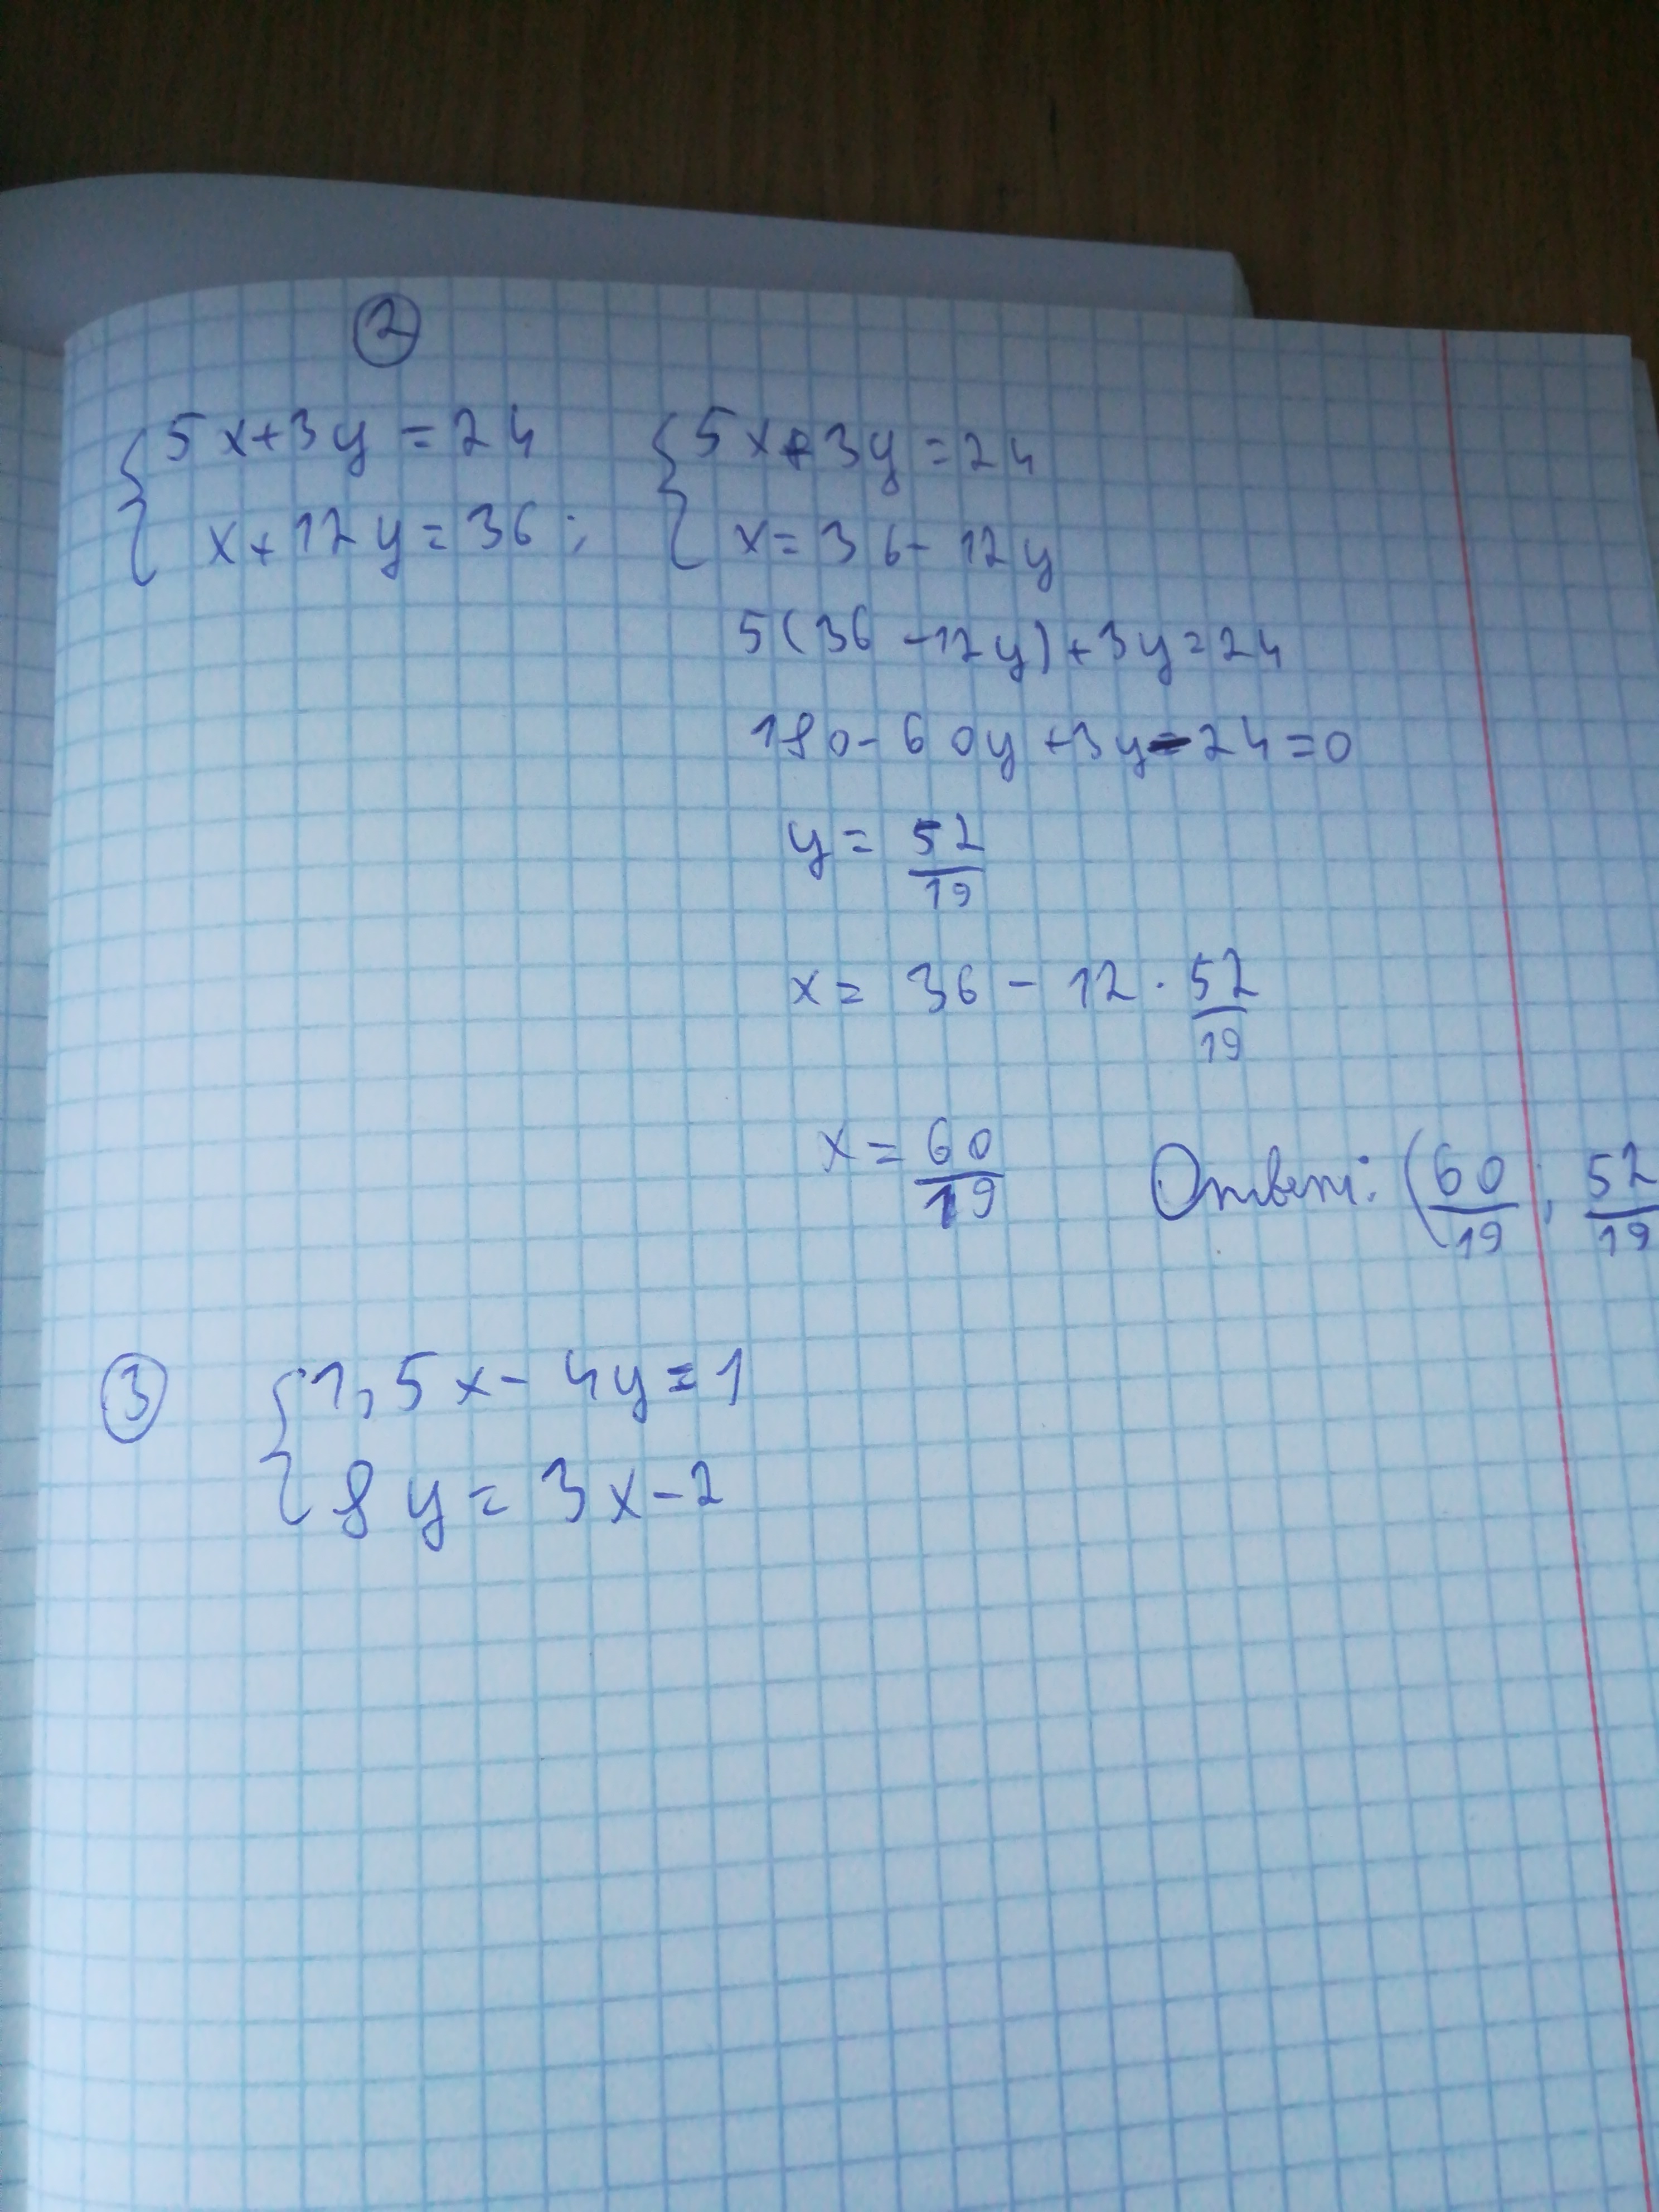 ②
{5x+3y=24 {5x+3y=24
x+12y=36; x=36-12y
5(36-12y)+3y=24
180-60y+3y-24=0
y=52/19
x=36-12·52/19
x=60/19 Ответ: (60/19; 52/19
③ {1,5x-4y=1
8y=3x-2